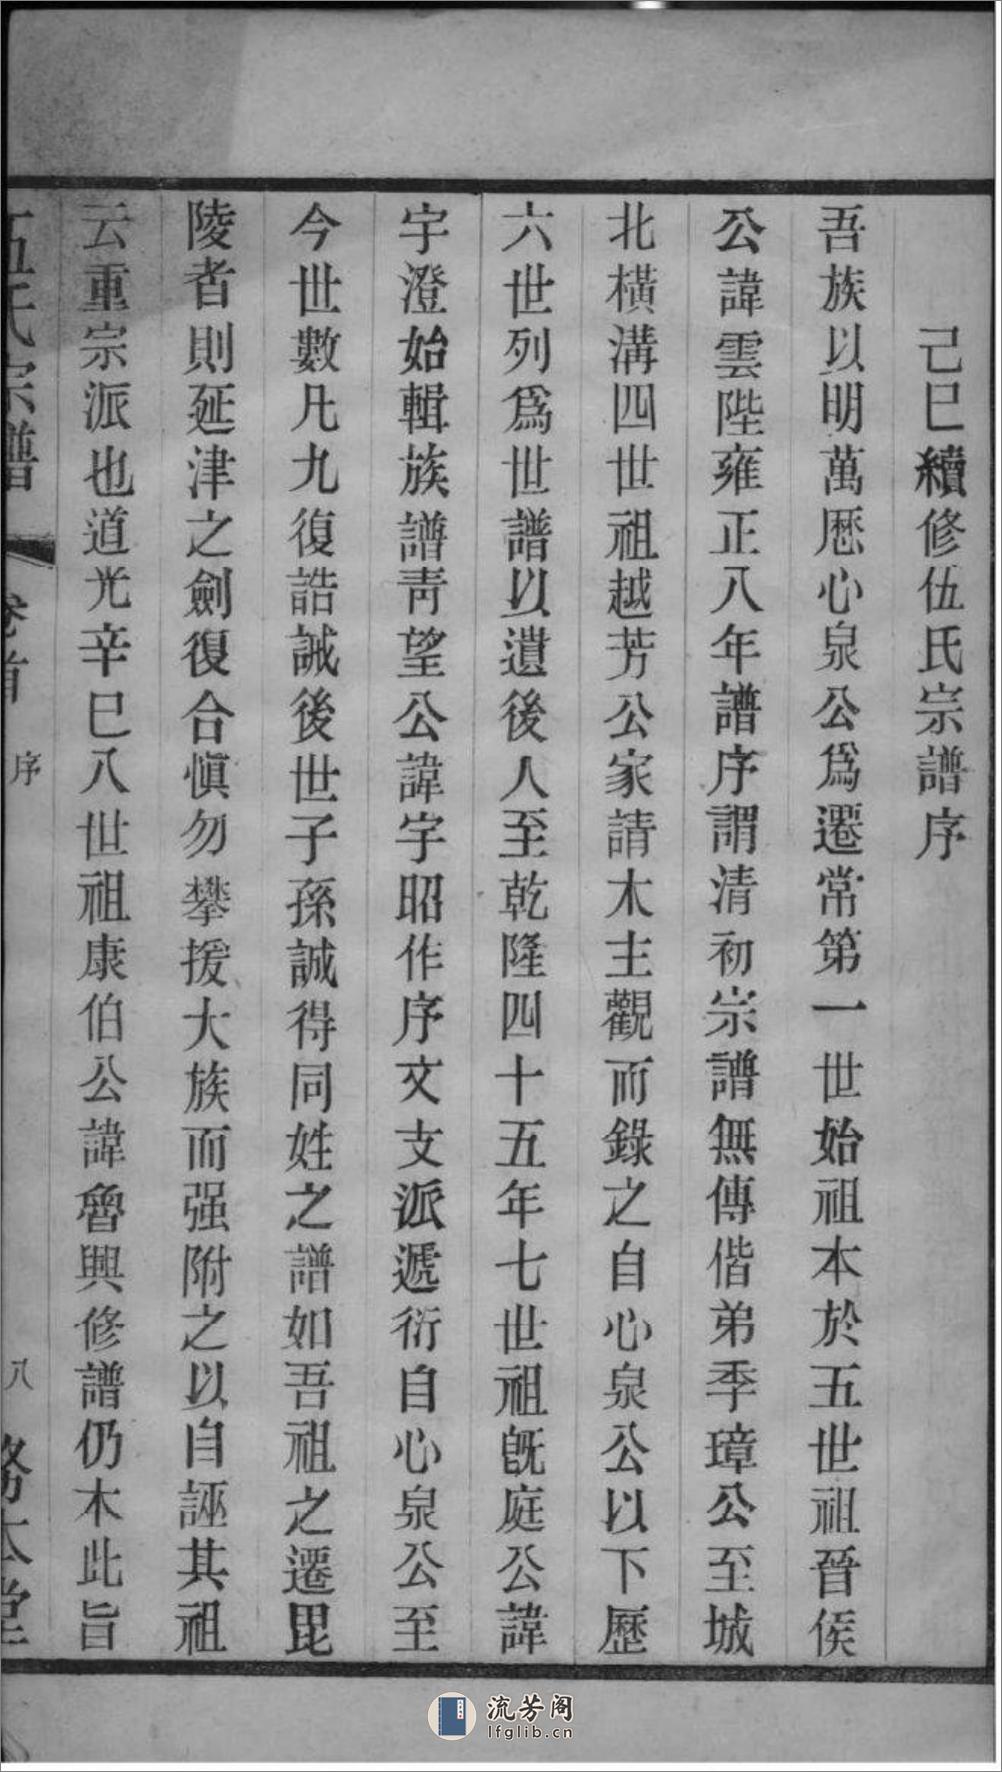 己巳續修伍氏宗譜序
吾族以明萬厯心泉公爲遷常第一世始祖本於五世祖晉侯
公諱雲陛雍正八年譜序謂清初宗譜無傳偕弟季璋公至城
北橫溝四世祖越芳公家請木主觀而錄之自心泉公以下歷
六世列爲世譜以遺後人至乾隆四十五年七世祖旣庭公諱
宇澄始輯族譜靑望公諱宇昭作序文支派遞衍自心泉公至
今世數凡九復誥誡後世子孫誠得同姓之譜如吾祖之遷毘
陵者則延津之劍復合愼勿攀援大族而强附之以自誣其祖
云重宗派也道光辛巳八世祖康伯公諱魯興修譜仍木此旨
伍氏宗譜 卷首 序 八 務本堂
流芳阁
lfglib.cn